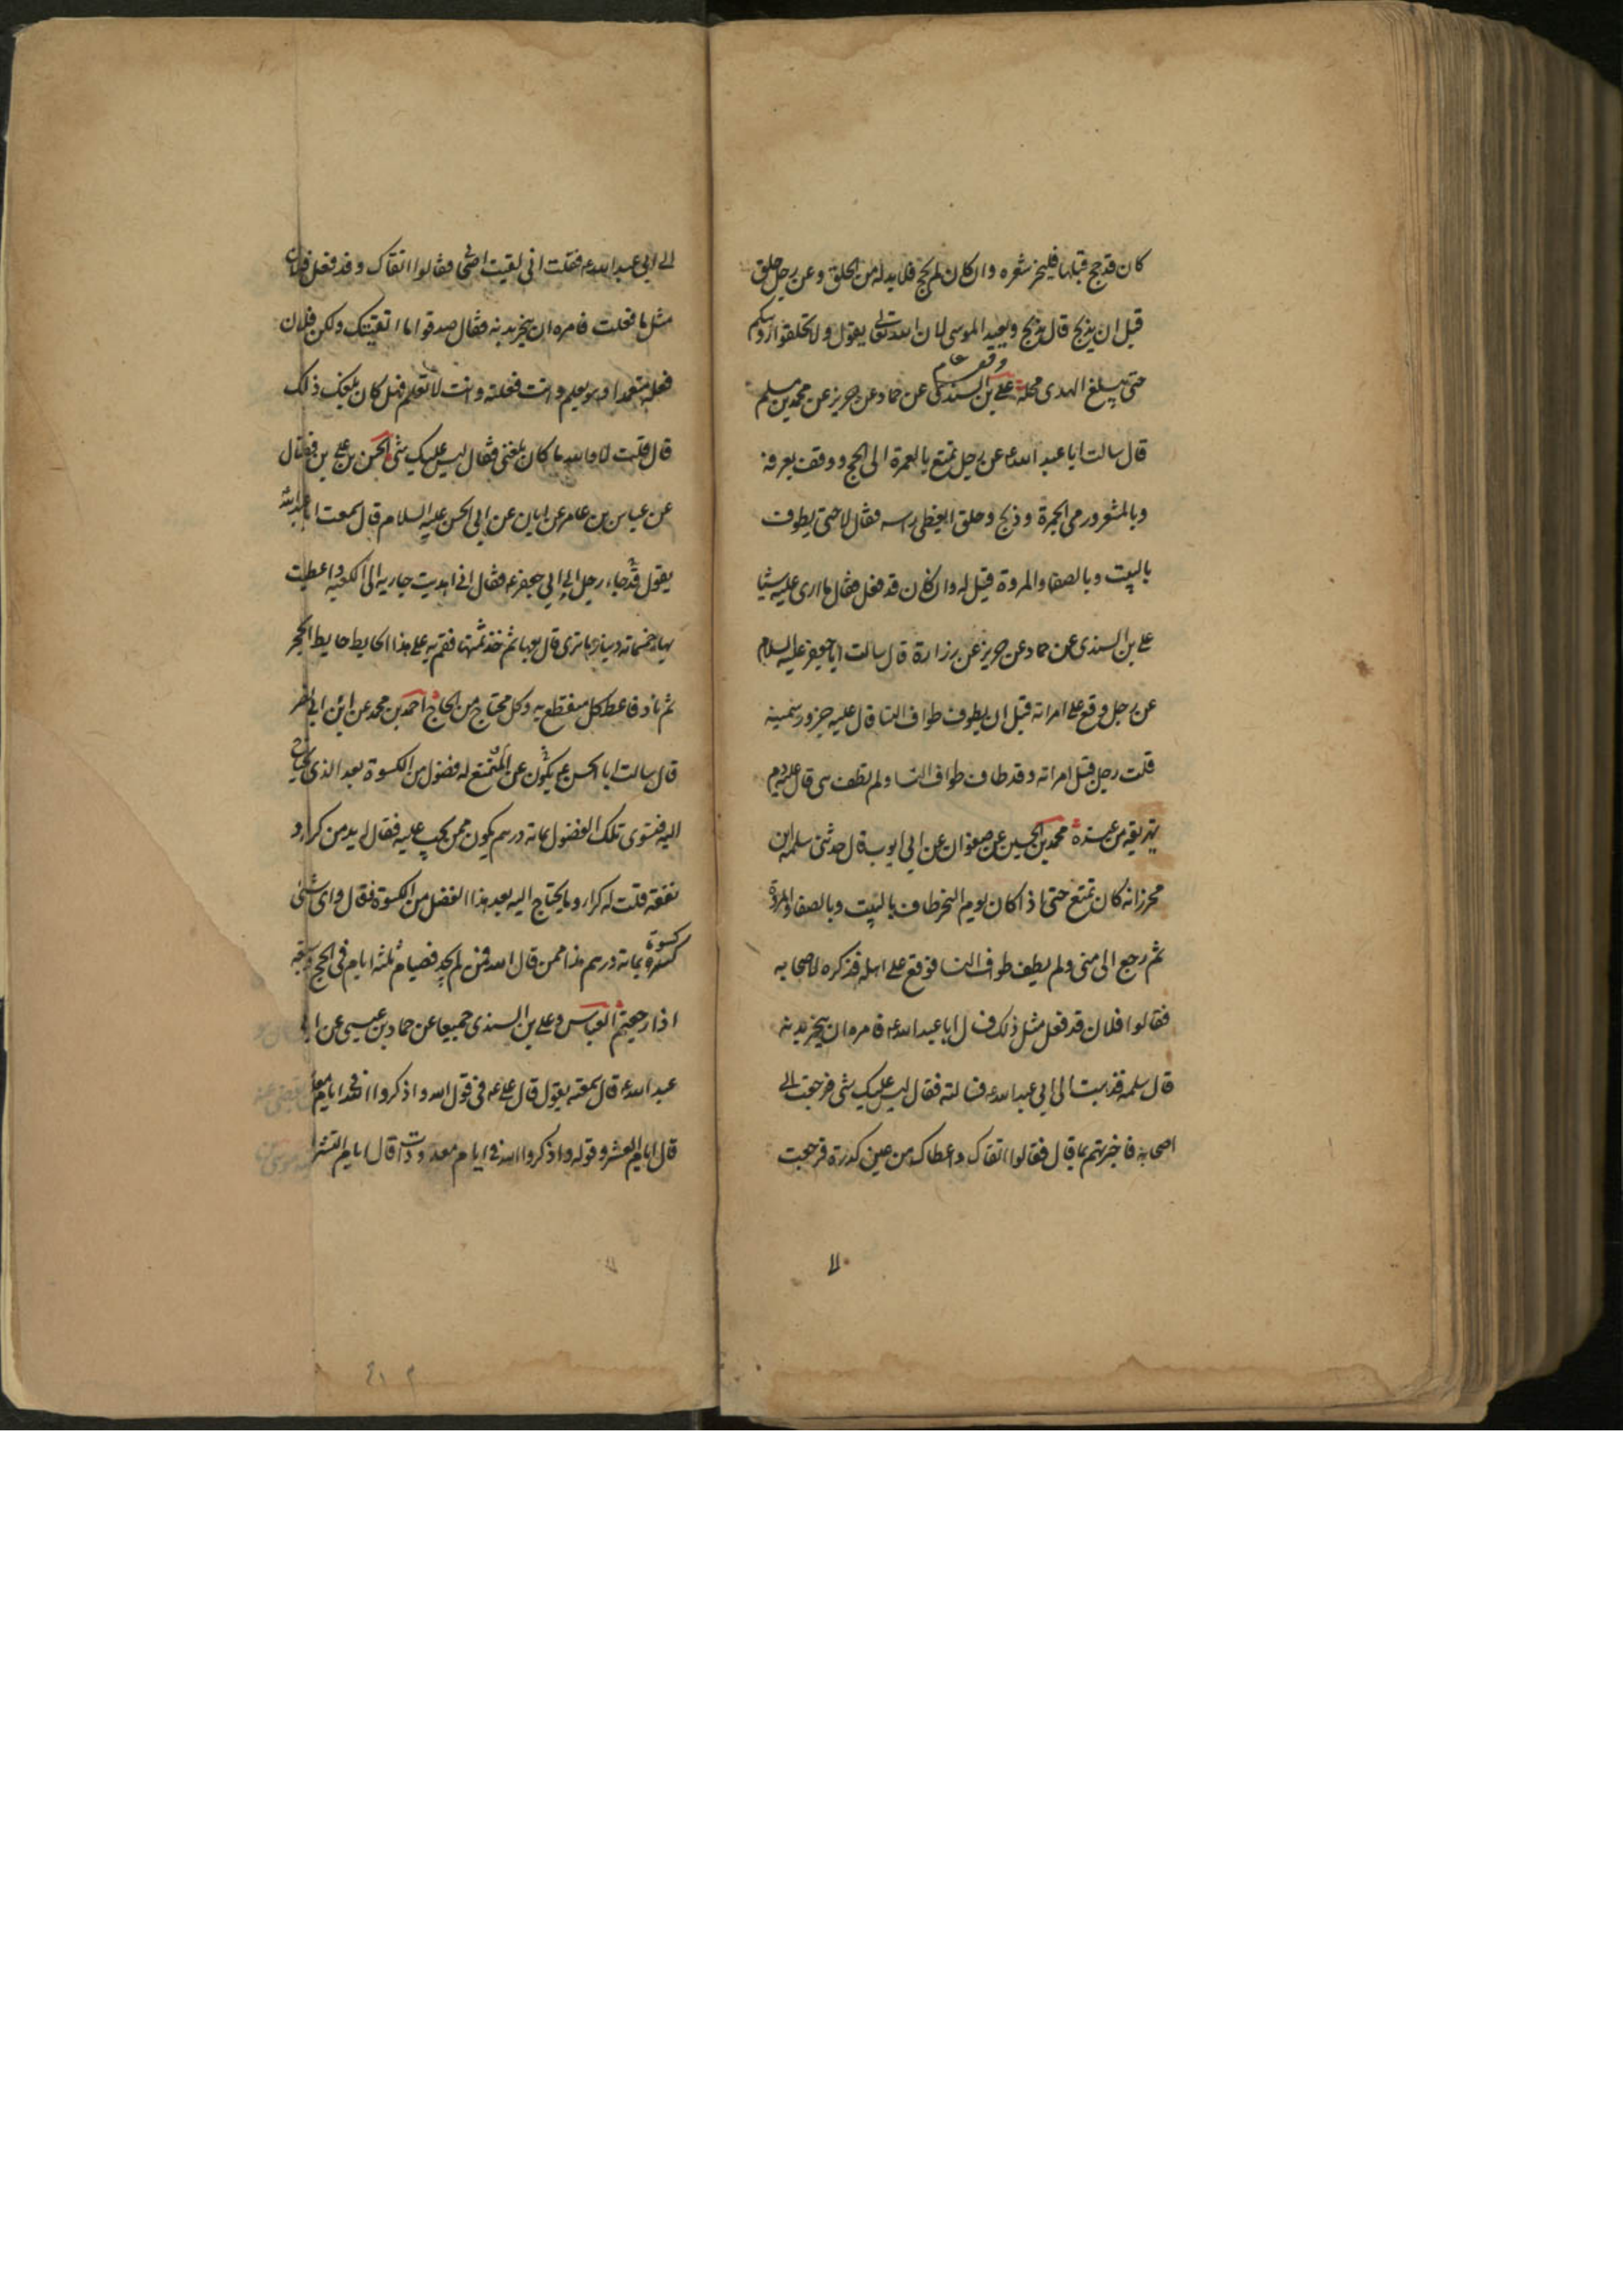 كان قد حج قبلها فليجز شعره وان كان لم يحج فلا بد له من الحلق وعن رجل حلق
قبل ان يذبح قال يذبح ويعيد الموسى لان الله تعالى يقول ولا تحلقوا رؤسكم
حتى يبلغ الهدى محله علي بن السندى عن حماد عن حريز عن محمد بن مسلم
قال سالت ابا عبد الله ع عن رجل تمتع بالعمرة الى الحج ووقف بعرفة
وبالمشعر ورمى الجمرة وذبح وحلق ايغطى راسه فقال لا حتى يطوف
بالبيت وبالصفا والمروة قيل له وان كان قد فعل فقال ما ارى عليه شيئا
علي بن السندى عن حماد عن حريز عن زرارة قال سالت ابا جعفر عليه السلام
عن رجل وقع على امراته قبل ان يطوف طواف النسا قال عليه جزور سمينة
قلت رجل قبل امراته وقد طاف طواف النسا ولم تطف هى قال عليه دم
يهريقه من عنده محمد بن الحسين عن صفوان عن ابي ايوب قال حدثنى سلمة ابن
محرز انه كان تمتع حتى اذا كان يوم النحر طاف بالبيت وبالصفا والمروة
ثم رجع الى منى ولم يطف طواف النسا فوقع على اهله فذكره لاصحابه
فقالوا فلان قد فعل مثل ذلك ف ل ابا عبد الله ع فامره ان ينحر بدنة
قال سلمة فذهبت الى ابي عبد الله ع فسالته فقال ليس عليك شى فرجعت الى
اصحابه فاخبرتهم بما قال فقالوا اتقاك واعطاك من عين كدرة فرجعت
الى ابي عبد الله ع فقلت انى لقيت اصحابى فقالوا اتقاك وقد فعل فلان
مثل ما فعلت فامره ان ينحر بدنة فقال صدقوا ما اتقيتك ولكن فلان
فعله متعمدا وهو يعلم وانت فعلته وانت لا تعلم فهل كان بلغك ذلك
قال قلت لا والله ما كان بلغنى فقال ليس عليك شى الحسن بن علي بن فضال
عن عباس بن عامر عن ابان عن ابي الحسن عليه السلام قال سمعت ابا عبد الله
يقول قد جاء رجل الى ابي جعفر ع فقال انى اهديت جارية الى الكعبة واعطيت
بها خمسمائة دينار ما ترى قال بعها ثم خذ ثمنها فقم به على هذا الحايط حايط الحجر
ثم ناد فاعط كل منقطع به وكل محتاج من الحاج احمد بن محمد عن ابن ابي نصر
قال سالت ابا الحسن ع عن المتمتع يكون له فضول من الكسوة بعد الذى يحتاج
اليه فتسوى تلك الفضول بمائة درهم يكون ممن يجب عليه فقال له بد من كراء و
نفقة قلت له كراء وما يحتاج اليه بعد هذا الفضل من الكسوة فقال واى شئ
كسوة بمائة درهم هذا ممن قال الله فمن لم يجد فصيام ثلثة ايام فى الحج وسبعة
اذا رجعتم العباس وعلي بن السندى جميعا عن حماد بن عيسى عن ابي
عبد الله ع قال سمعته يقول قال على ع فى قول الله واذكروا الله فى ايام معلومات
قال ايام العشر وقوله واذكروا الله فى ايام معدودات قال ايام التشر